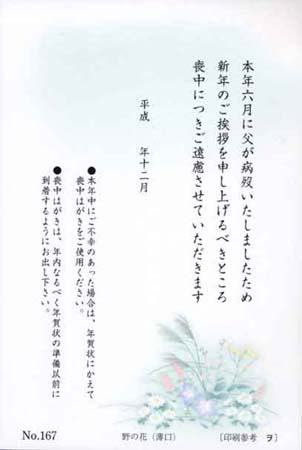 本年六月に父が病歿いたしましたため
新年のご挨拶を申し上げるべきところ
喪中につきご遠慮させていただきます
平成　　年十二月
●本年中にご不幸のあった場合は、年賀状にかえて
喪中はがきをご使用ください。
●喪中はがきは、年内なるべく年賀状の準備以前に
到着するようにお出し下さい。
No.167
野の花（薄口）
［印刷参考　ヲ］